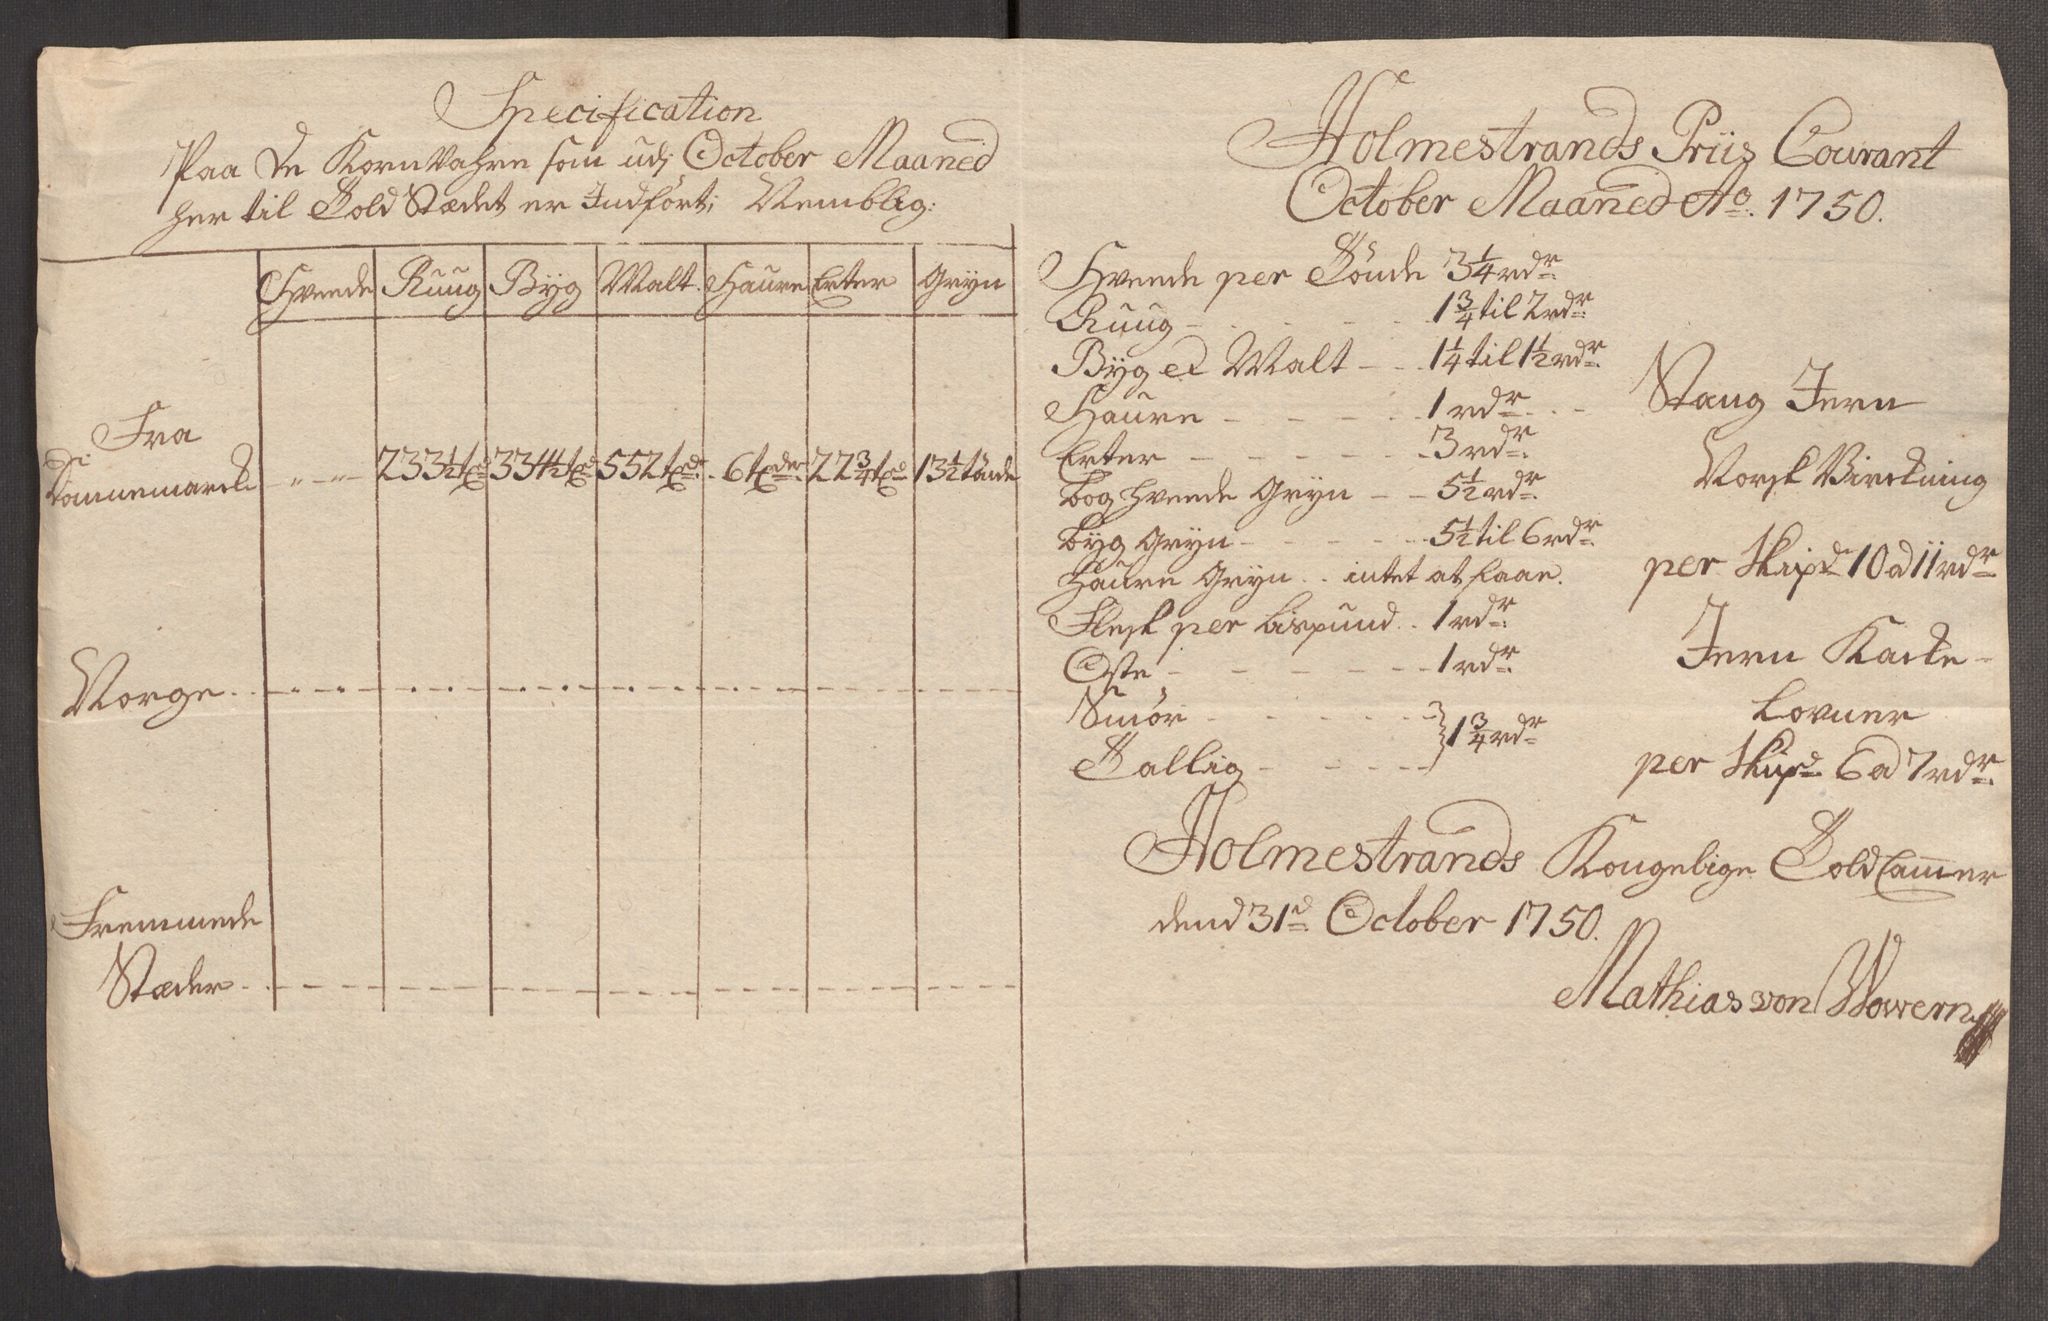 Specification
Paa de Korn Vahre som udj October Maaned
her til Told Stædet er Indfört, Nemblig:
Hveede Ruug Byg Malt Haure Erter Gryn
Fra
Dannemarck 233½ tdr 334½ tdr 552 tdr 6 tdr 22¾ tdr 13½ tönde
Norge
Fremmede
Stæder
Holmestrands Priis Courant
October Maaned Ao. 1750.
Hveede per Tönde 3¼ rdr
Ruug 1¾ til 2 rdr
Byg et Malt 1¼ til 1½ rdr
Haure 1 rdr
Erter 3 rdr
bog hveede Gryn 5½ rdr
byg Gryn 5½ til 6 rdr
haure Gryn intet at faae.
Flesk per Bispund 1 rdr
Oste 1 rdr
Smör
Tallig } 1¾ rdr
Stang Jern
Norsk Virckning
per Skipd 10 a 11 rdr
Jern Kackelovner
per Skipd 6 a 7 rdr
Holmestrands Kongelige Told Cammer
dend 31d October 1750.
Mathias von Wowern